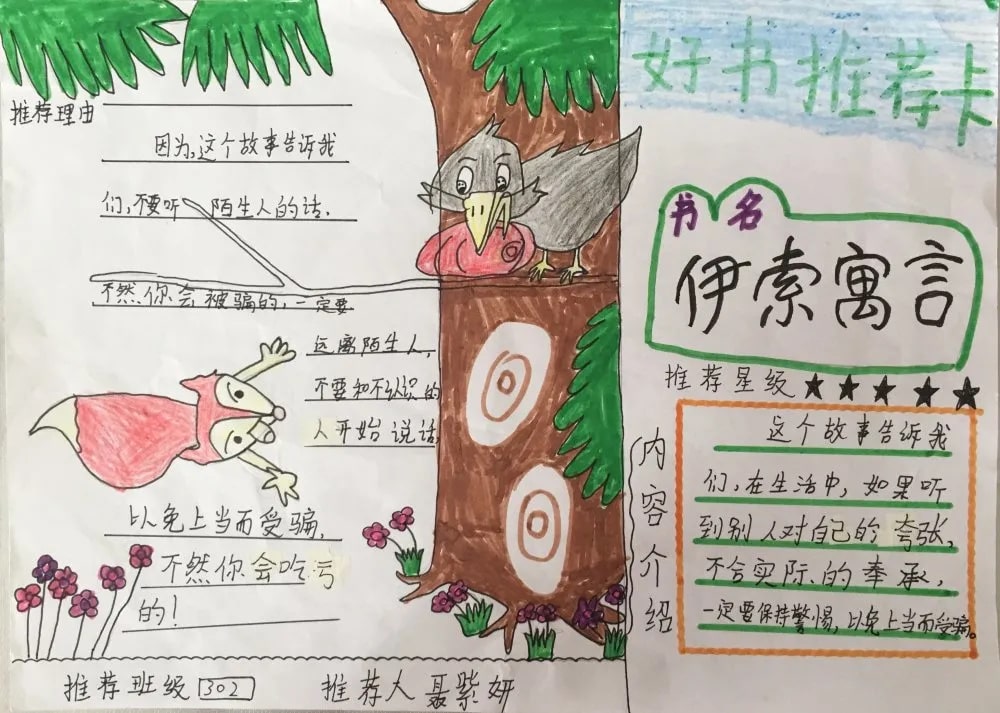 好书推荐卡
推荐理由
因为,这个故事告诉我
们,不要听陌生人的话.
不然你会被骗的,一定要
远离陌生人,
不要和不认识的
人开始说话,
以免上当而受骗,
不然你会吃亏
的!
推荐班级 302
推荐人 聂紫妍
书名
伊索寓言
推荐星级
内容介绍
这个故事告诉我
们,在生活中,如果听
到别人对自己的夸张,
不合实际的奉承,
一定要保持警惕,以免上当而受骗。